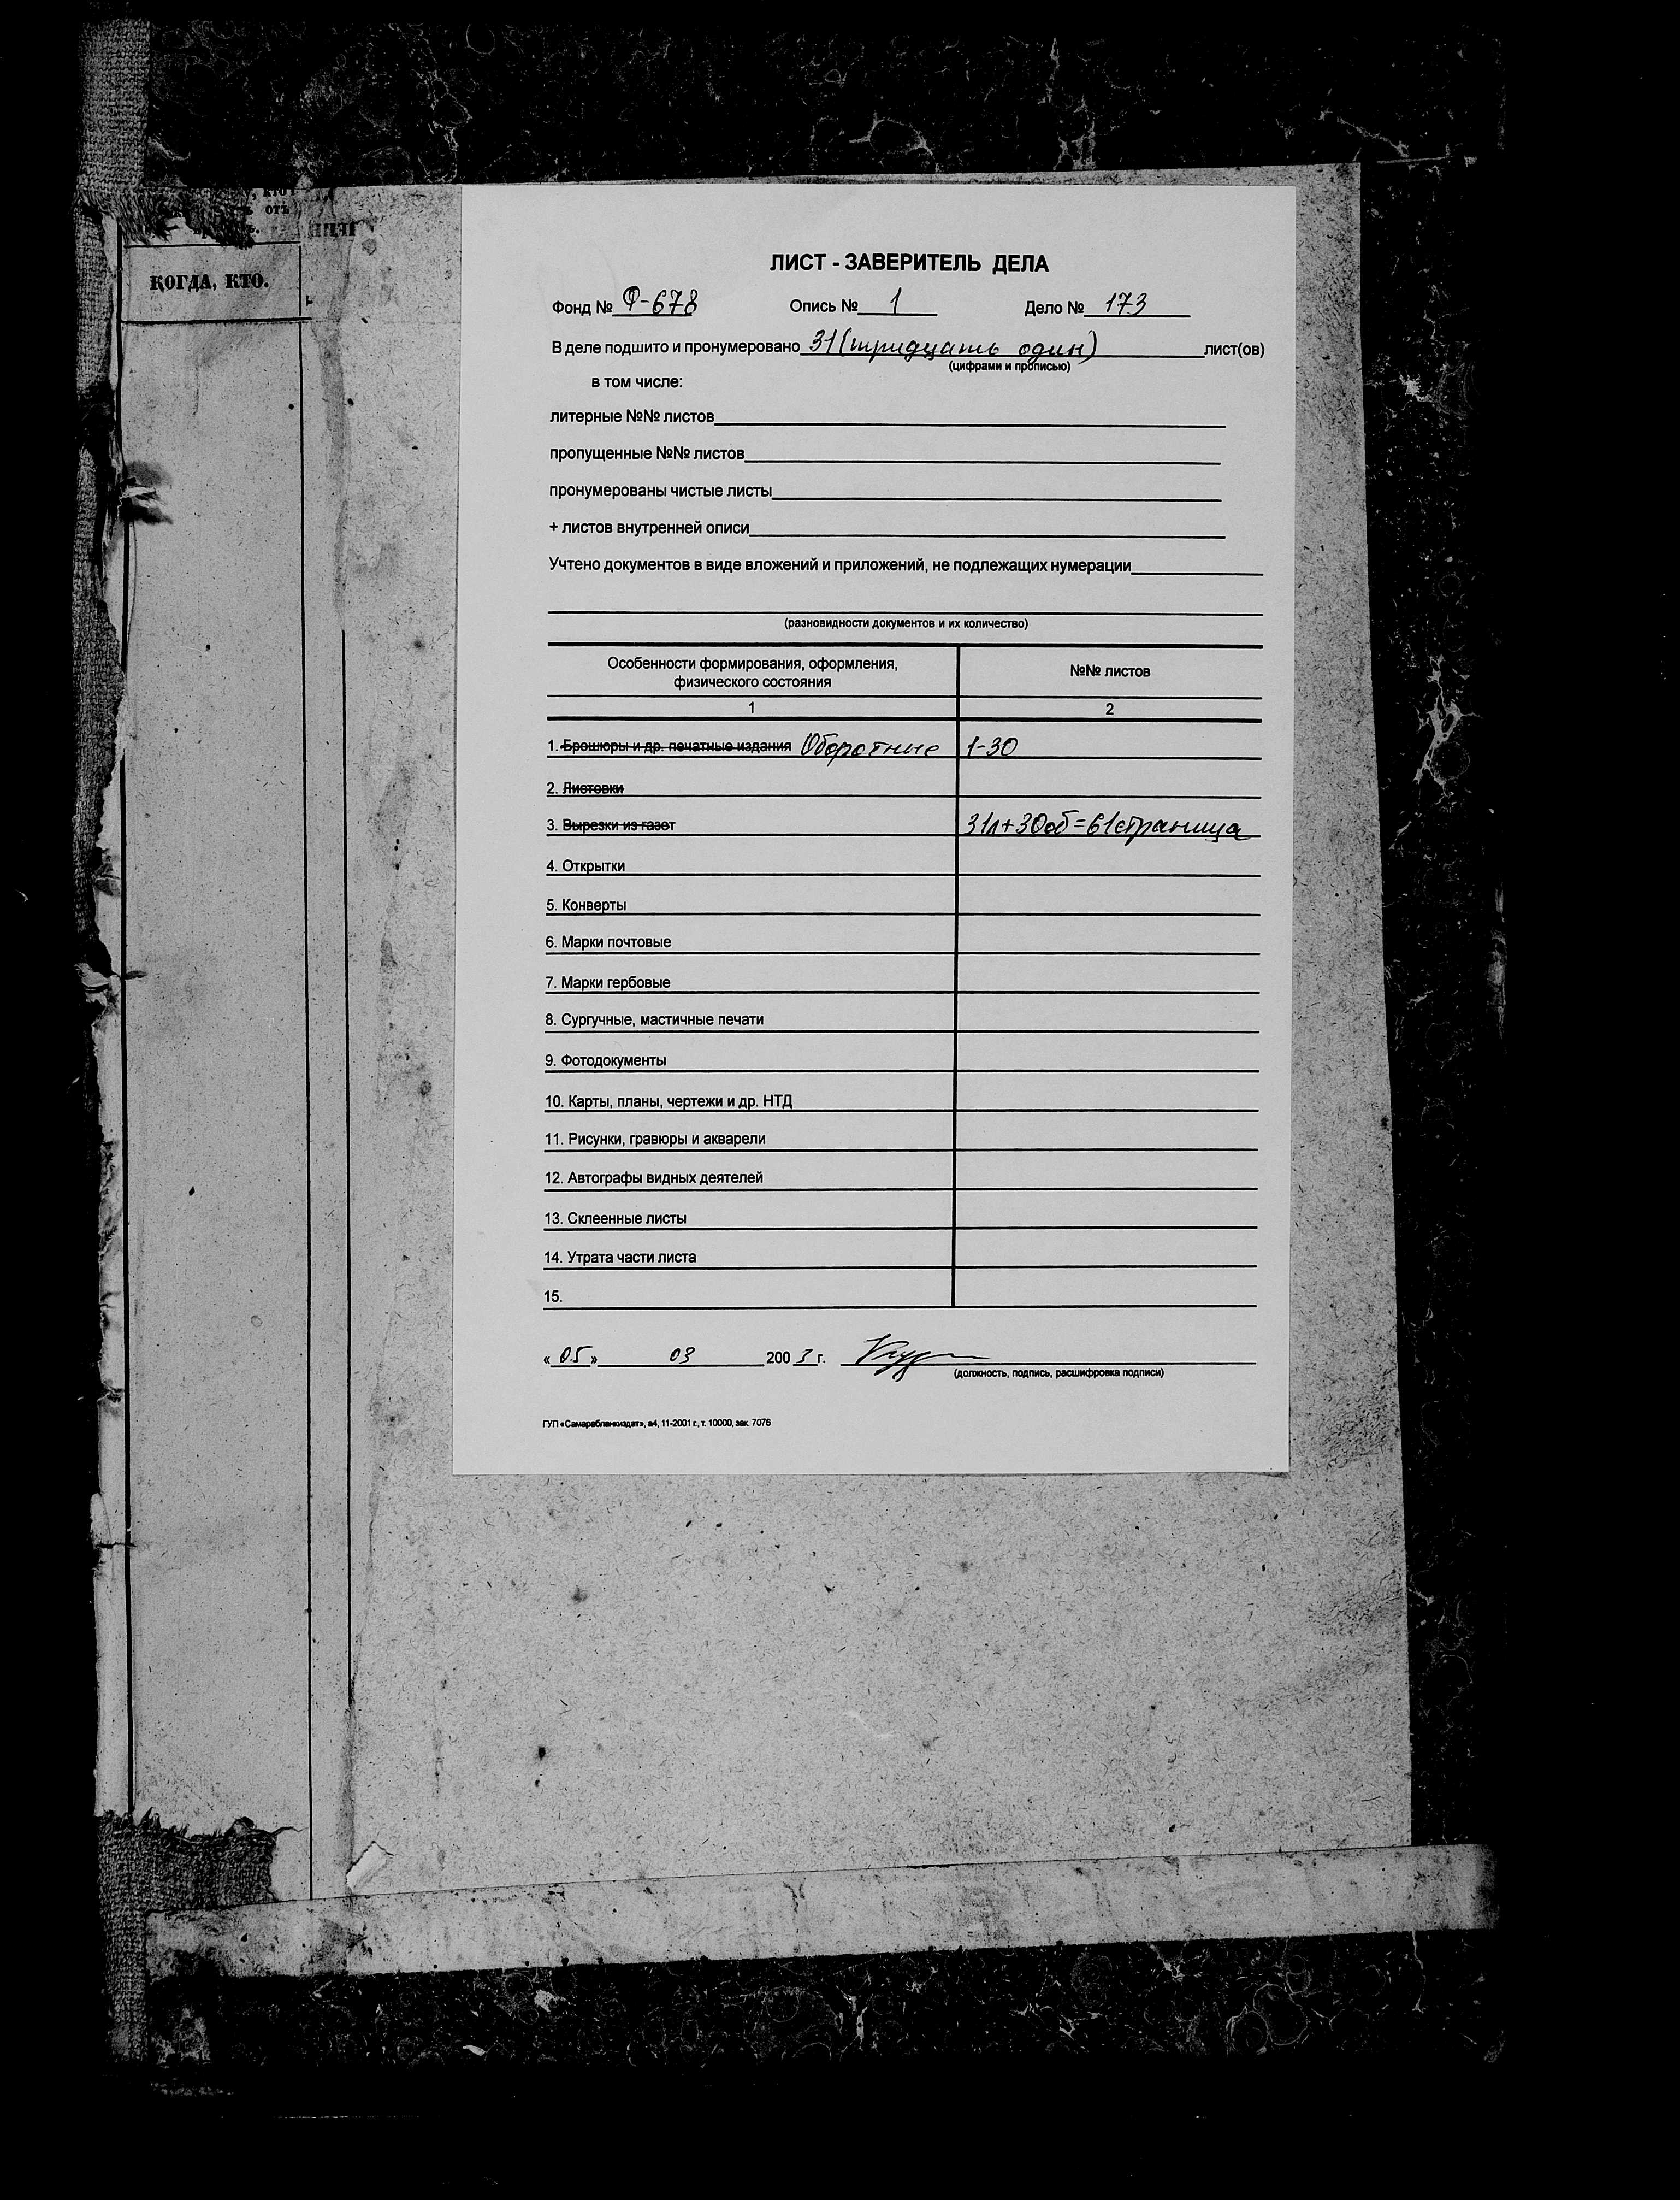 отъ
КОГДА, КТО.
ЛИСТ - ЗАВЕРИТЕЛЬ ДЕЛА
Фонд № Ф-678 Опись № 1 Дело № 173
В деле подшито и пронумеровано 31 (тридцать один) лист(ов)
(цифрами и прописью)
в том числе:
литерные №№ листов
пропущенные №№ листов
пронумерованы чистые листы
+ листов внутренней описи
Учтено документов в виде вложений и приложений, не подлежащих нумерации
(разновидности документов и их количество)
Особенности формирования, оформления, №№ листов
физического состояния
1 2
1. Брошюры и др. печатные издания Оборотные 1-30
2. Листовки
3. Вырезки из газет 31л+30об=61страница
4. Открытки
5. Конверты
6. Марки почтовые
7. Марки гербовые
8. Сургучные, мастичные печати
9. Фотодокументы
10. Карты, планы, чертежи и др. НТД
11. Рисунки, гравюры и акварели
12. Автографы видных деятелей
13. Склеенные листы
14. Утрата части листа
15.
« 05 » 03 200 3 г.
(должность, подпись, расшифровка подписи)
ГУП «Самарабланкиздат», а4, 11-2001 г., т. 10000, зак. 7076